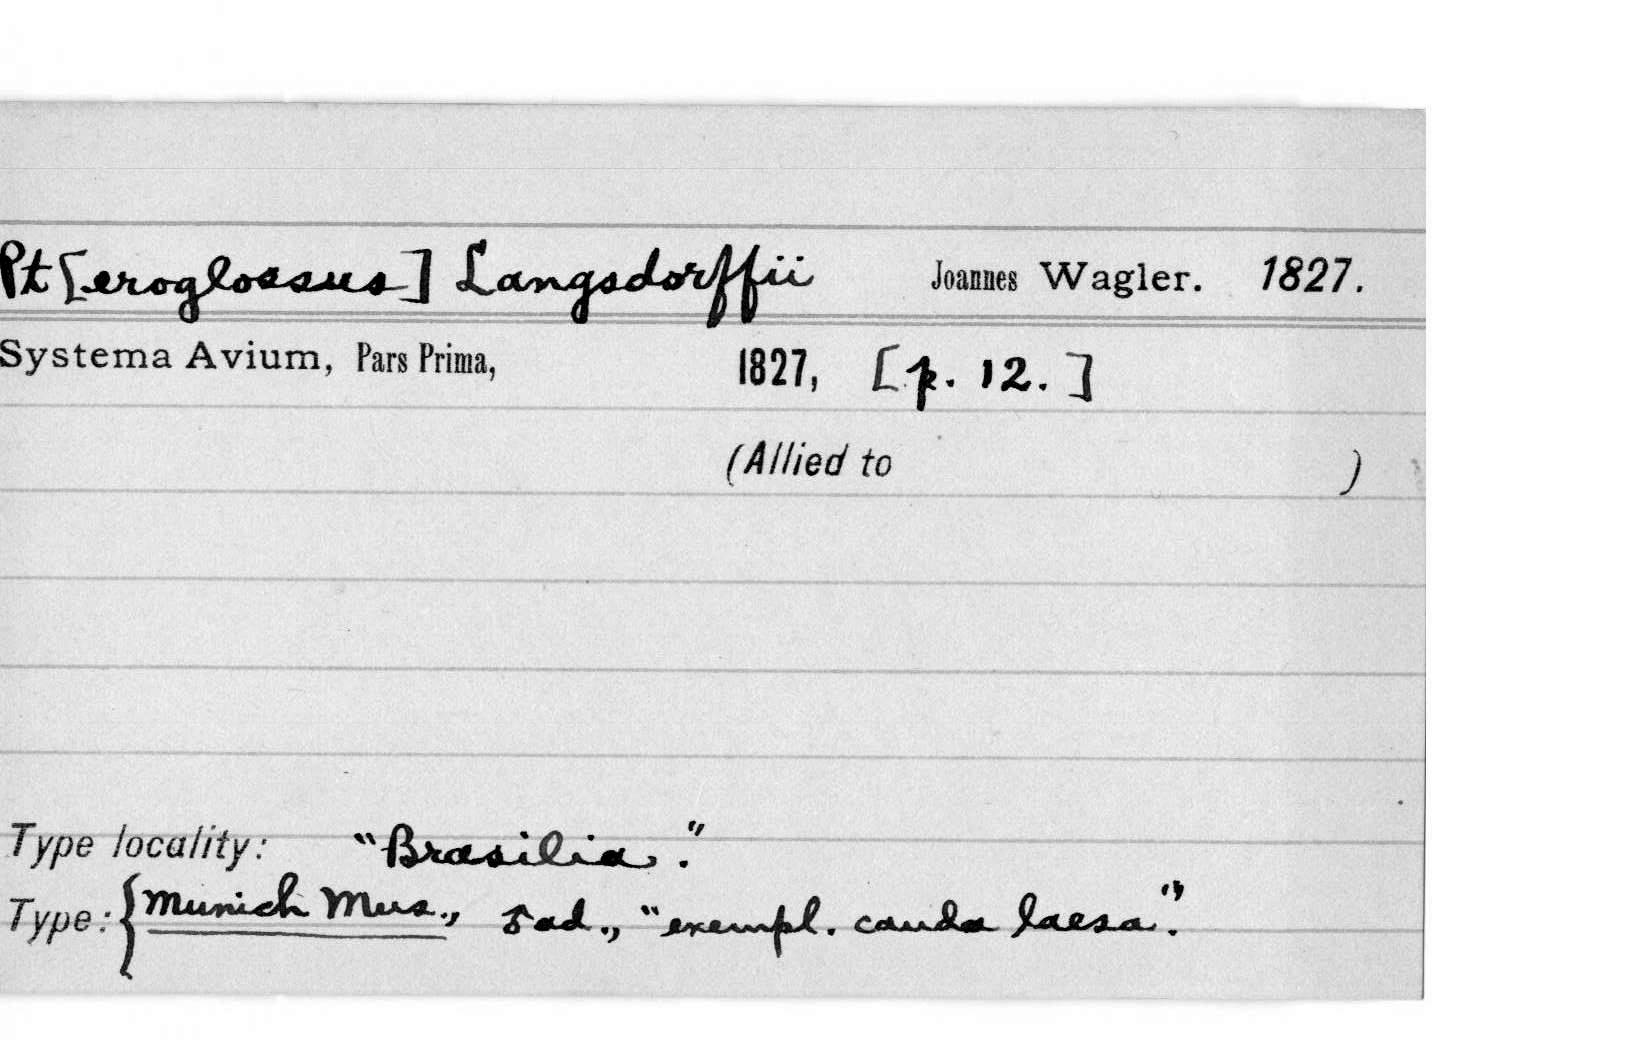 Pt[eroglossus] Langsdorffii Joannes Wagler. 1827.
Systema Avium, Pars Prima, 1827, [p. 12.]
(Allied to )
Type locality: "Brasilia."
Type: {Munich Mus., ♂ ad., "exempl. cauda laesa".